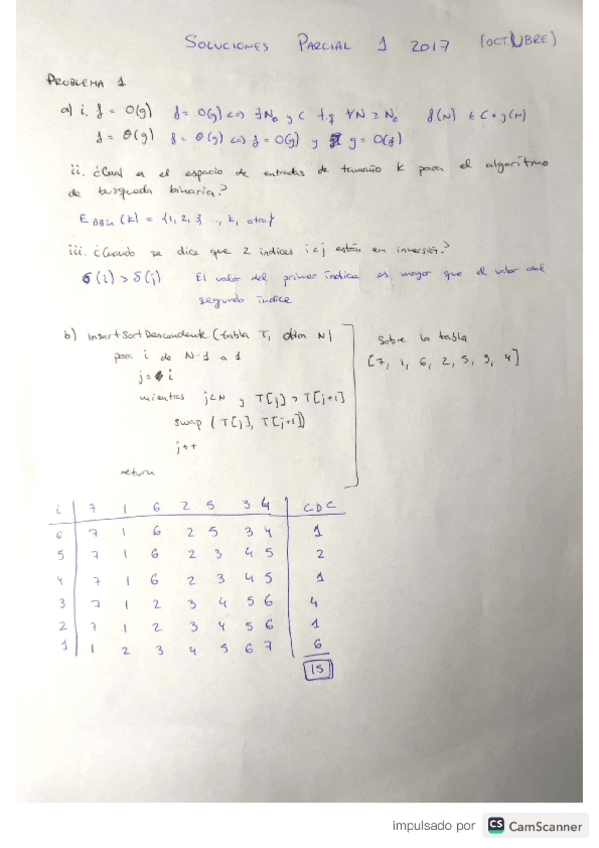 SOLUCIONES PARCIAL 1 2017 (OCTUBRE)
PROBLEMA 1
a) i. f = O(g) f = O(g) <=> ∃N₀ y C t.q ∀N ≥ N₀ f(N) ≤ C * g(N)
f = θ(g) f = θ(g) <=> f = O(g) y g = O(f)
ii. ¿Cual es el espacio de entradas de tamaño K para el algoritmo
de busqueda binaria?
E BBin (K) = {1, 2, 3 ..., K, otro}
iii. ¿Cuando se dice que 2 indices i<j están en inversión?
σ(i) > σ(j) El valor del primer índice es mayor que el valor del
segundo índice
b) InsertSortDescendente (tabla T, dim N)
para i de N-1 a 1
j = i
mientras j<N y T[j] > T[j+1]
swap (T[j], T[j+1])
j++
return
Sobre la tabla
[7, 1, 6, 2, 5, 3, 4]
i 7 1 6 2 5 3 4 CDC
6 7 1 6 2 5 3 4 1
5 7 1 6 2 3 4 5 2
4 7 1 6 2 3 4 5 1
3 7 1 2 3 4 5 6 4
2 7 1 2 3 4 5 6 1
1 1 2 3 4 5 6 7 6
15
impulsado por CS CamScanner